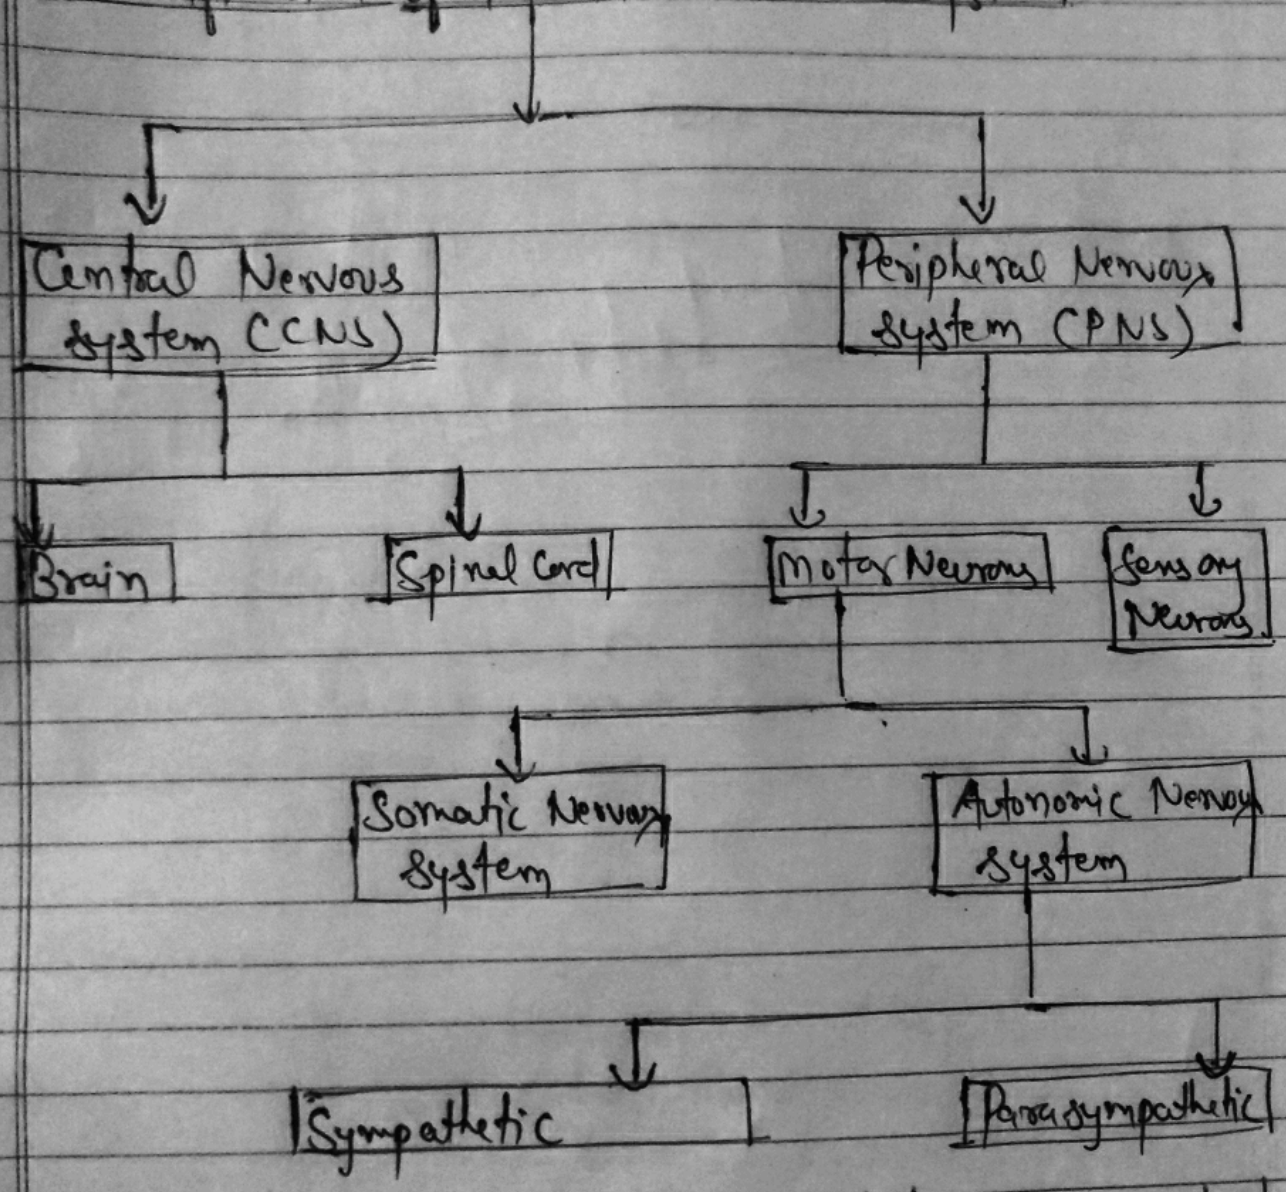 Central Nervous
system (CCNS)
Peripheral Nervous
system (PNS)
Brain
Spinal Cord
Motor Neurons
Sensory
Neurons.
Somatic Nervous
system
Autonomic Nervous
system
Sympathetic
Parasympathetic